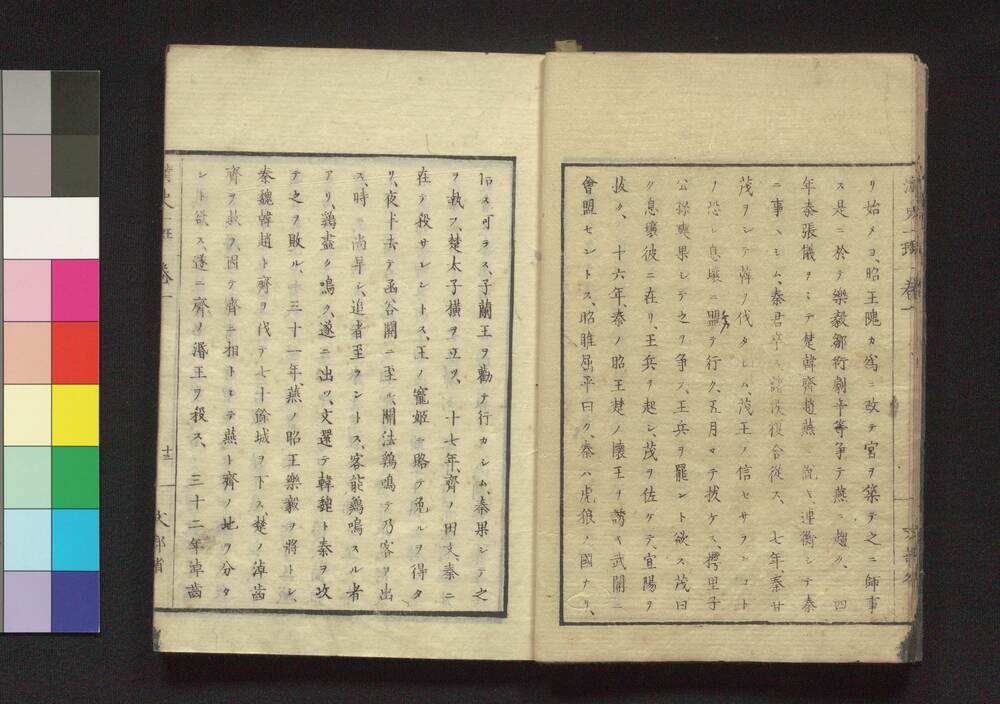 リ始メヨ、昭王隗カ爲ニ改テ宮ヲ築テ之ニ師事
ス是ニ於テ樂毅鄒衍劇辛等争テ燕ニ趨ク、四
年秦張儀ヲシテ楚韓齊趙燕ニ説キ連衡シテ秦
ニ事ヘシム、秦君卒シ諸侯復合從ス、七年、秦甘
茂ヲシテ韓ノ伐タシム、茂王ノ信セサランコト
ノ恐レ息壤ニ盟ヲ行ク、五月マテ拔ケス、樗里子
公孫奭果シテ之ヲ争フ、王兵ヲ罷ント欲ス茂曰
ク息壤彼ニ在リ、王兵ヲ起シ、茂ヲ佐ケテ、宜陽ヲ
拔ク、十六年、秦ノ昭王楚ノ懷王ヲ誘ヘ武關ニ
會盟セントス、昭睢屈平曰ク、秦ハ虎狼ノ國ナリ、
信ス可ラス、子蘭王ヲ勸テ行カシム、秦果シテ之
ヲ執フ、楚太子横ヲ立ツ、十七年、齊ノ田文、秦ニ
在テ殺サレントス、王ノ寵姫ニ賂テ免ルヲ得タ
リ、夜半去テ函谷關ニ至ル、關法鶏鳴テ乃客ヲ出
ス、時ニ尚早シ、追者至ラントス、客能鷄鳴スル者
アリ、鷄盡ク鳴ク、遂ニ出ツ、文還テ韓魏ト秦ヲ攻
テ之ヲ敗ル、三十一年、燕ノ昭王樂毅ヲ將トシ、
秦魏韓趙ト齊ヲ伐テ七十餘城ヲ下ス、楚ノ淖齒
齊ヲ救フ、因テ齊ニ相トシテ燕ト齊ノ地ヲ分タ
ント欲ス、遂ニ齊ノ湣王ヲ殺ス、三十二年淖齒
卷一
十二